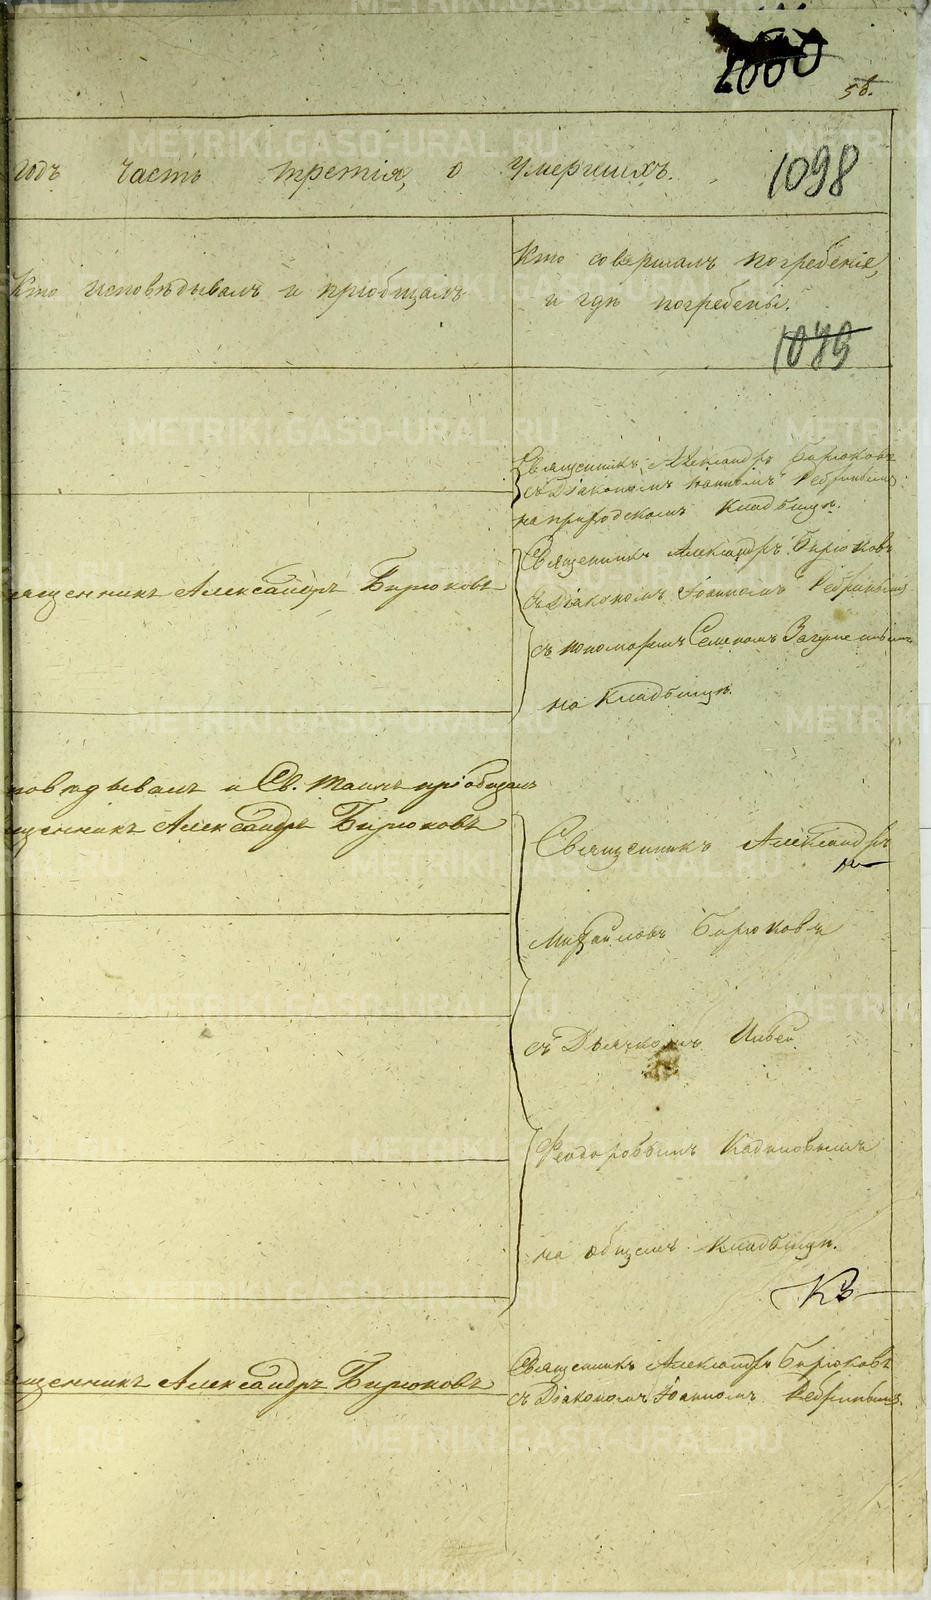 1098
годъ часть третія, о умершихъ.
Кто исповѣдывалъ и пріобщалъ
Кто совершалъ погребеніе,
и гдѣ погребены.
1079
Священникъ Александръ Бирюковъ
съ Діакономъ Іоанномъ Ребринымъ
на приходскомъ Кладбищѣ.
ященникъ Александръ Бирюковъ
Священникъ Александръ Бирюковъ
съ Діакономъ Іоанномъ Ребринымъ
съ пономаремъ Семеномъ
на Кладбищѣ.
повѣдывалъ и Св. Таинъ пріобщалъ
щенникъ Александръ Бирюковъ
Священникъ Александръ
Михайловъ Бирюковъ
съ Дьячкомъ Ильей
Феодоровымъ Кадиловымъ
на общемъ Кладбищѣ.
щенникъ Александръ Бирюковъ
Священникъ Александръ Бирюковъ
съ Діакономъ Іоанномъ Ребринымъ.
METRIKI.GASO-URAL.RU